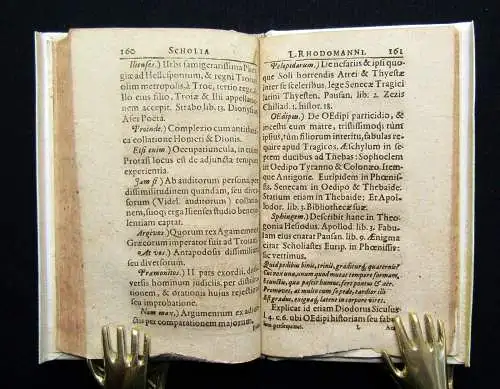 160 SCHOLIA
Ilienses.) Urbs famigeratissima Phry-
giæ ad Hellespontum, & regni Troiani
olim metropolis, à Troe, tertio rege,
Ilo eius filio, Troiæ & Ilii appellatio-
nem accepit. Strabo lib. 13. Dionysius
Afer Poëta.
Proinde.) Complexio cum antithesi
ex collatione Homeri & Dionis.
Etsi enim) Occupatiuncula, in cuius
Protasi locus est de adjuncta tempori
experientia.
Jam si) Ab auditorum personarum
dissimilitudinem quandam, seu diversi-
tatem (Videl. auditorum) collatio-
nem, suoq; erga Ilienses studio bene-
lentiam captat.
Argivos) Quorum rex Agamemnon
Græcorum imperator fuit ad Troiam.
At vos) Antapodosis dissimilium seu
diversorum.
Præmonitus.) II pars exordii, de di-
versis hominum judiciis, per distribut.
& orationis hujus rejectationem
seu improbationem.
Nam mav.) Argumentum ex ad-
Dis per comparationem majorum
L. RHODOMANNI. 161
Pelopidarum.) De nefariis & ipsi quo-
que Soli horrendis Atrei & Thyestæ
inter se sceleribus, lege Senecæ Tragici
latini Thyesten, Pausan. lib. 2. Zezis
Chiliad. 1. histor. 18.
OEdipum.) De OEdipi parricidio, &
incestu cum matre, tristissimoq; tùm
ipsius, tùm filiorum interitu, fabulas re
require apud Tragicos. Æschylum in se-
ptem ducibus ad Thebas: Sophoclem
in OEdipo Tyranno & Colonæo. Item-
que Antigone. Euripidem in Phœnis-
sis. Senecam in OEdipo & Thebaide:
Statium etiam in Thebaide: Et Apol-
lodor. lib. 3. Bibliothecæ suæ.
Sphingem.) Describit hanc in Theo-
gonia Hesiodus. Apollod. lib. 3. Fabu-
lam eius enarrat Pausan. lib. 9. Ænigma
citat Scholiastes Eurip. in Phœnissis
vertimus.
Quid pedibus binis, trinis, graditurq; quaternis?
Cui vox una, unum quod mutat tempore formam,
translis, quo passus humi, fert pontus & aër.
Promovet, at multo cum se pede, tardior illi
Est gradus, enigmaq; latens in corpore vires.
Explicat id etiam Diodorus Siculus
l. 4. c. 6. ubi OEdipi historiam seu fabu-
L